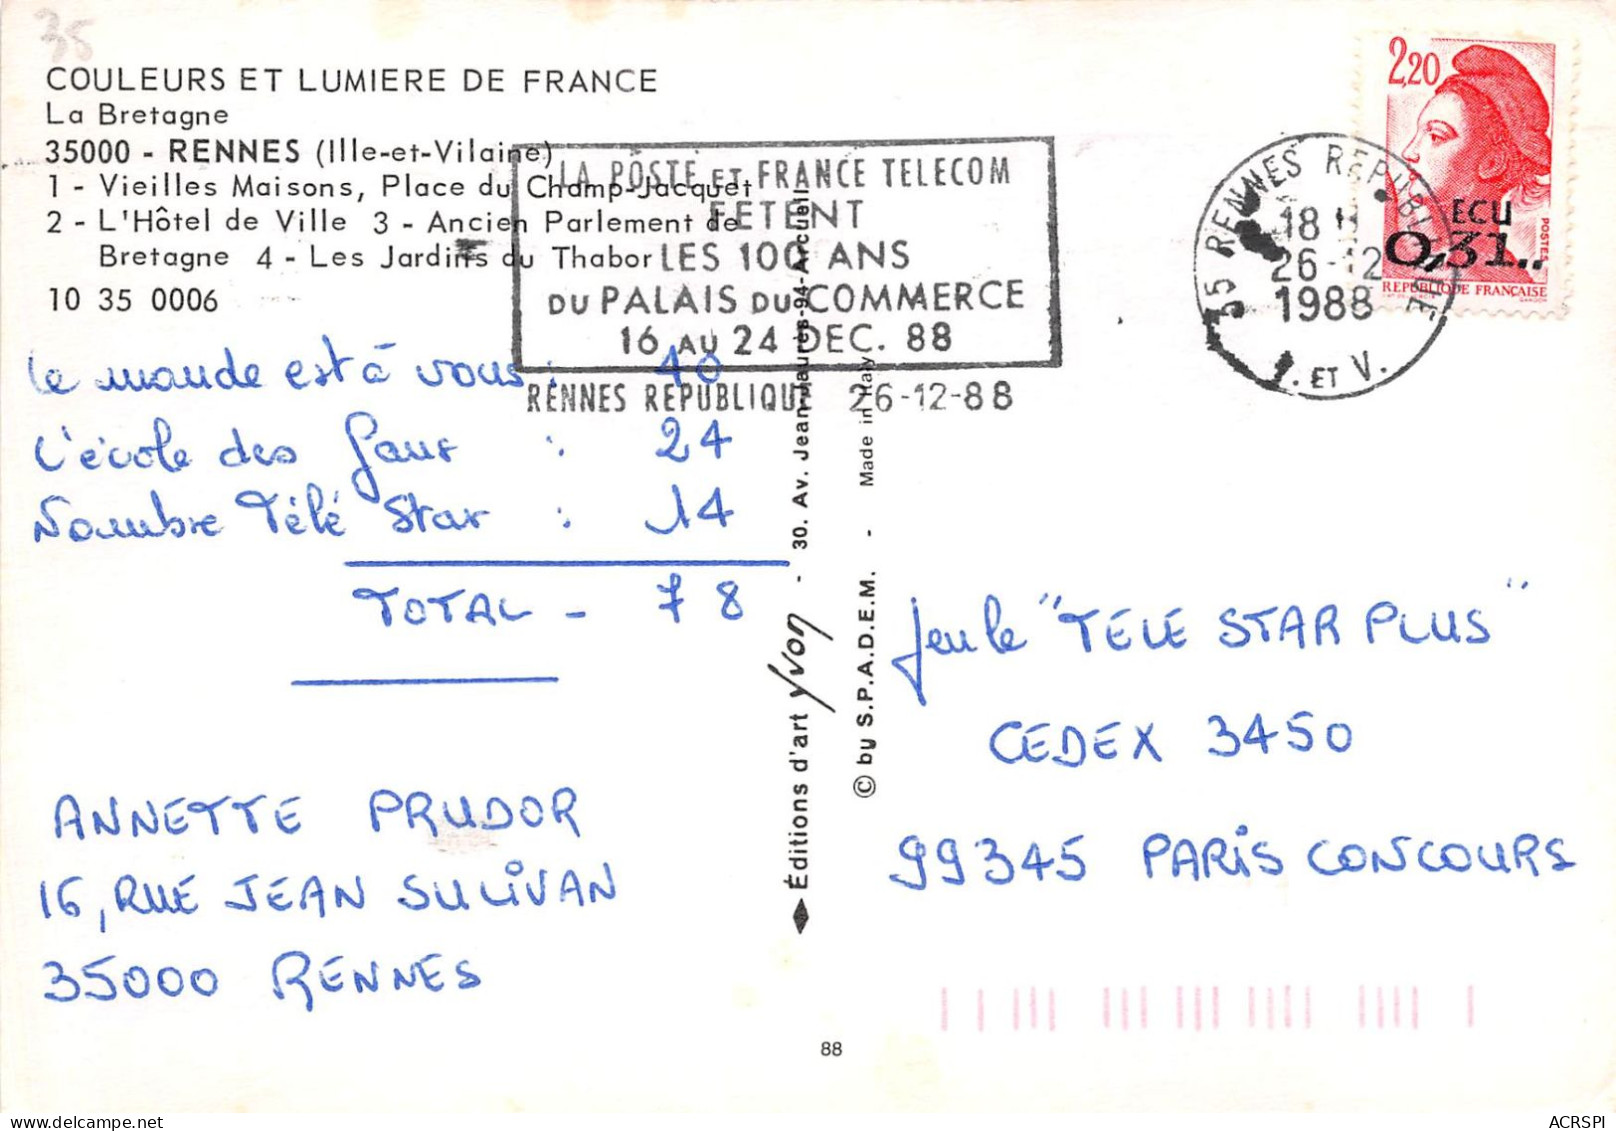 35
COULEURS ET LUMIERE DE FRANCE
La Bretagne
35000 - RENNES (Ille-et-Vilaine)
1 - Vieilles Maisons, Place du Champ-Jacquet
2 - L'Hôtel de Ville 3 - Ancien Parlement de
Bretagne 4 - Les Jardins du Thabor
10 35 0006
LA POSTE ET FRANCE TELECOM
FETENT
LES 100 ANS
DU PALAIS DU COMMERCE
16 AU 24 DEC. 88
RENNES REPUBLIQUE 26-12-88
35 RENNES REPUBLIQUE
18 H
26-12
1988
I. ET V.
2,20
ECU
0,31..
POSTES
REPUBLIQUE FRANÇAISE
Le monde est à vous : 40
L'école des fans : 24
Nombre Télé Star : 14
TOTAL - 78
ANNETTE PRUDOR
16, RUE JEAN SULIVAN
35000 RENNES
Éditions d'art yvon - 30. Av. Jean-Jaurès-94-Arcueil
© by S.P.A.D.E.M. - Made in Italy
Jeu le "TELE STAR PLUS"
CEDEX 3450
99345 PARIS CONCOURS
88
ACRSPI